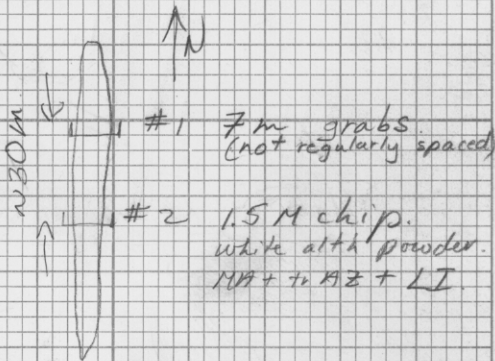 N
~30m.
#1 7m grabs.
(not regularly spaced)
#2 1.5 M chip.
white alth powder.
MA + tr AZ + LI.